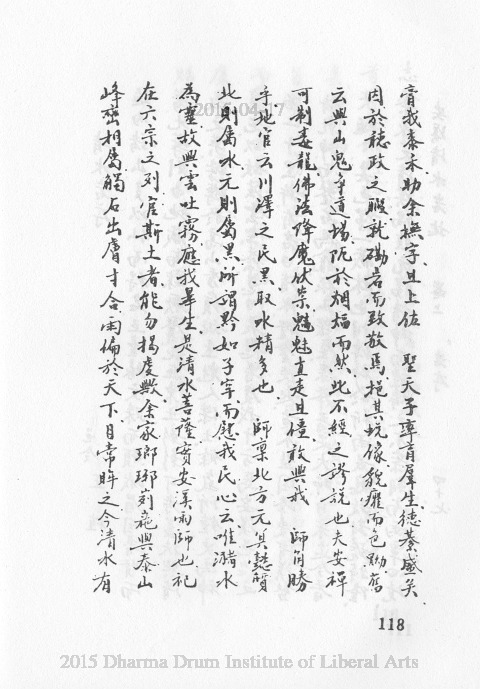 膏我黍禾助余撫字且上佐　聖天子率育羣生德綦盛矣
因於聽政之暇就磡岩而致敬焉挹其玩像貌癯而色黝舊
云與山鬼爭道場阨於烟煏而然此不經之謬說也夫安禪
可制毒龍佛法降魔伏祟魑魅直走且僵敢與我　師角勝
乎地官云川澤之民黑取水精多也　師稟北方元冥懿質
此則屬水元則屬黑所謂黔如子宰而慰我民心云唯潴水
為靈故興雲吐霧應我羣生是清水菩薩實安溪雨師也祀
在六宗之列宦斯土者能勿揭虔歟余家瑯琊荊菀與泰山
峰巒相屬觸石出膚寸合雨偏於天下目常眸之今清水有
118
2015-04-17
2015 Dharma Drum Institute of Liberal Arts